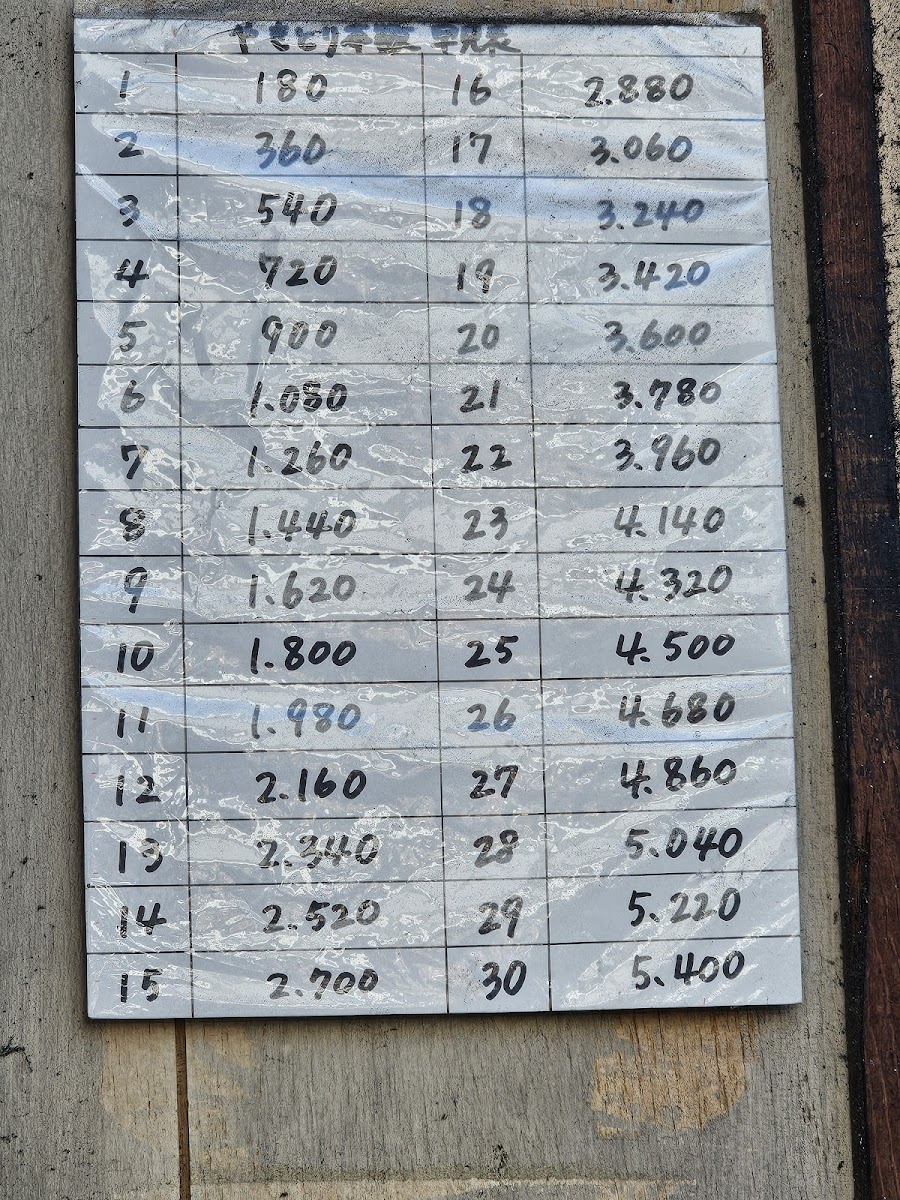 やきとり本数 早見表
1 180 16 2.880
2 360 17 3.060
3 540 18 3.240
4 720 19 3.420
5 900 20 3.600
6 1.080 21 3.780
7 1.260 22 3.960
8 1.440 23 4.140
9 1.620 24 4.320
10 1.800 25 4.500
11 1.980 26 4.680
12 2.160 27 4.860
13 2.340 28 5.040
14 2.520 29 5.220
15 2.700 30 5.400